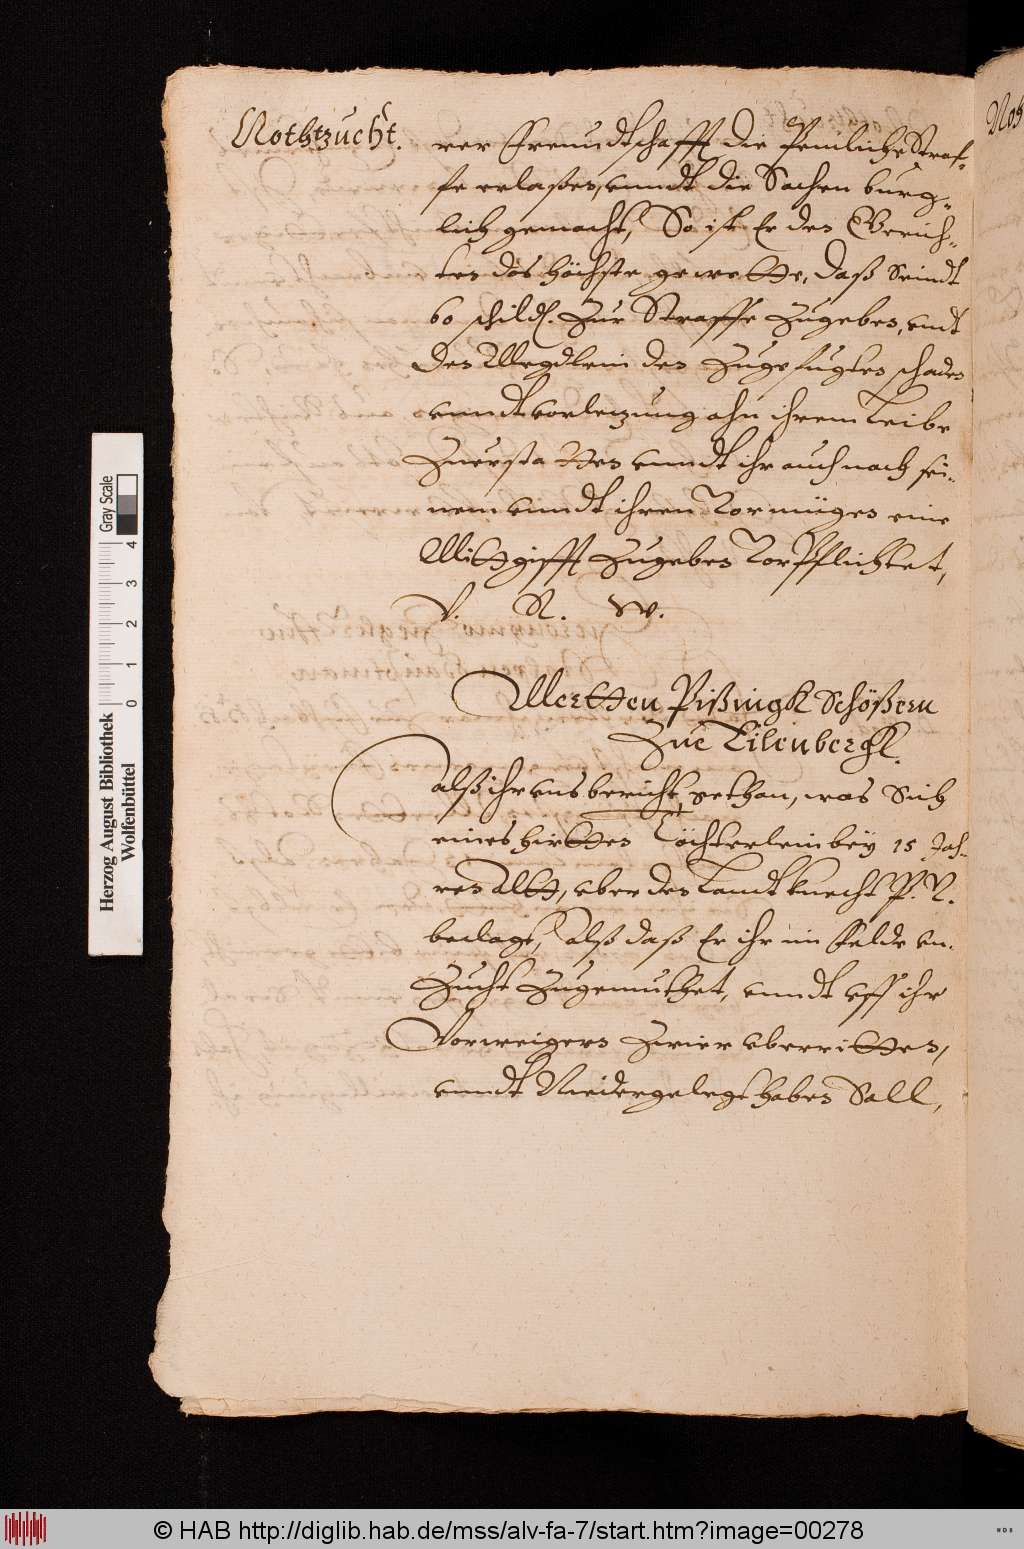 Nothzucht.
rer Freundtschafft die Peinliche Straf-
fe erlaßen, unndt die Sachen burg-
lich gemacht, So ist Er den Gerich-
ten das höchste gewette, daß seindt
60 schild. Zur Straffe Zugeben, undt
den Megdlein den Zugefugten schaden
unndt vorletzung ahn ihrem Leibe
Zuerstatten unndt ihr auch nach sei-
nem unndt ihren Vormügen eine
Mittgifft Zugeben Vorpflichtet,
V. R. W.
Mertten Pißingk Schößern
Zue Eilenbergk.
alß ihr uns bericht gethan, was Sich
eines hirtten Töchterlein bey 15 Jah-
ren Altt, uber den Landtknecht P. V.
beclagt, alß daß Er ihr im Felde un-
Zucht Zugemuthet, unndt uff ihr
Vorweigern Zwier uberritten,
unndt Niedergelegt haben Soll,
Noh
Herzog August Bibliothek
Wolfenbüttel
Gray Scale
0 1 2 3 4
© HAB http://diglib.hab.de/mss/alv-fa-7/start.htm?image=00278